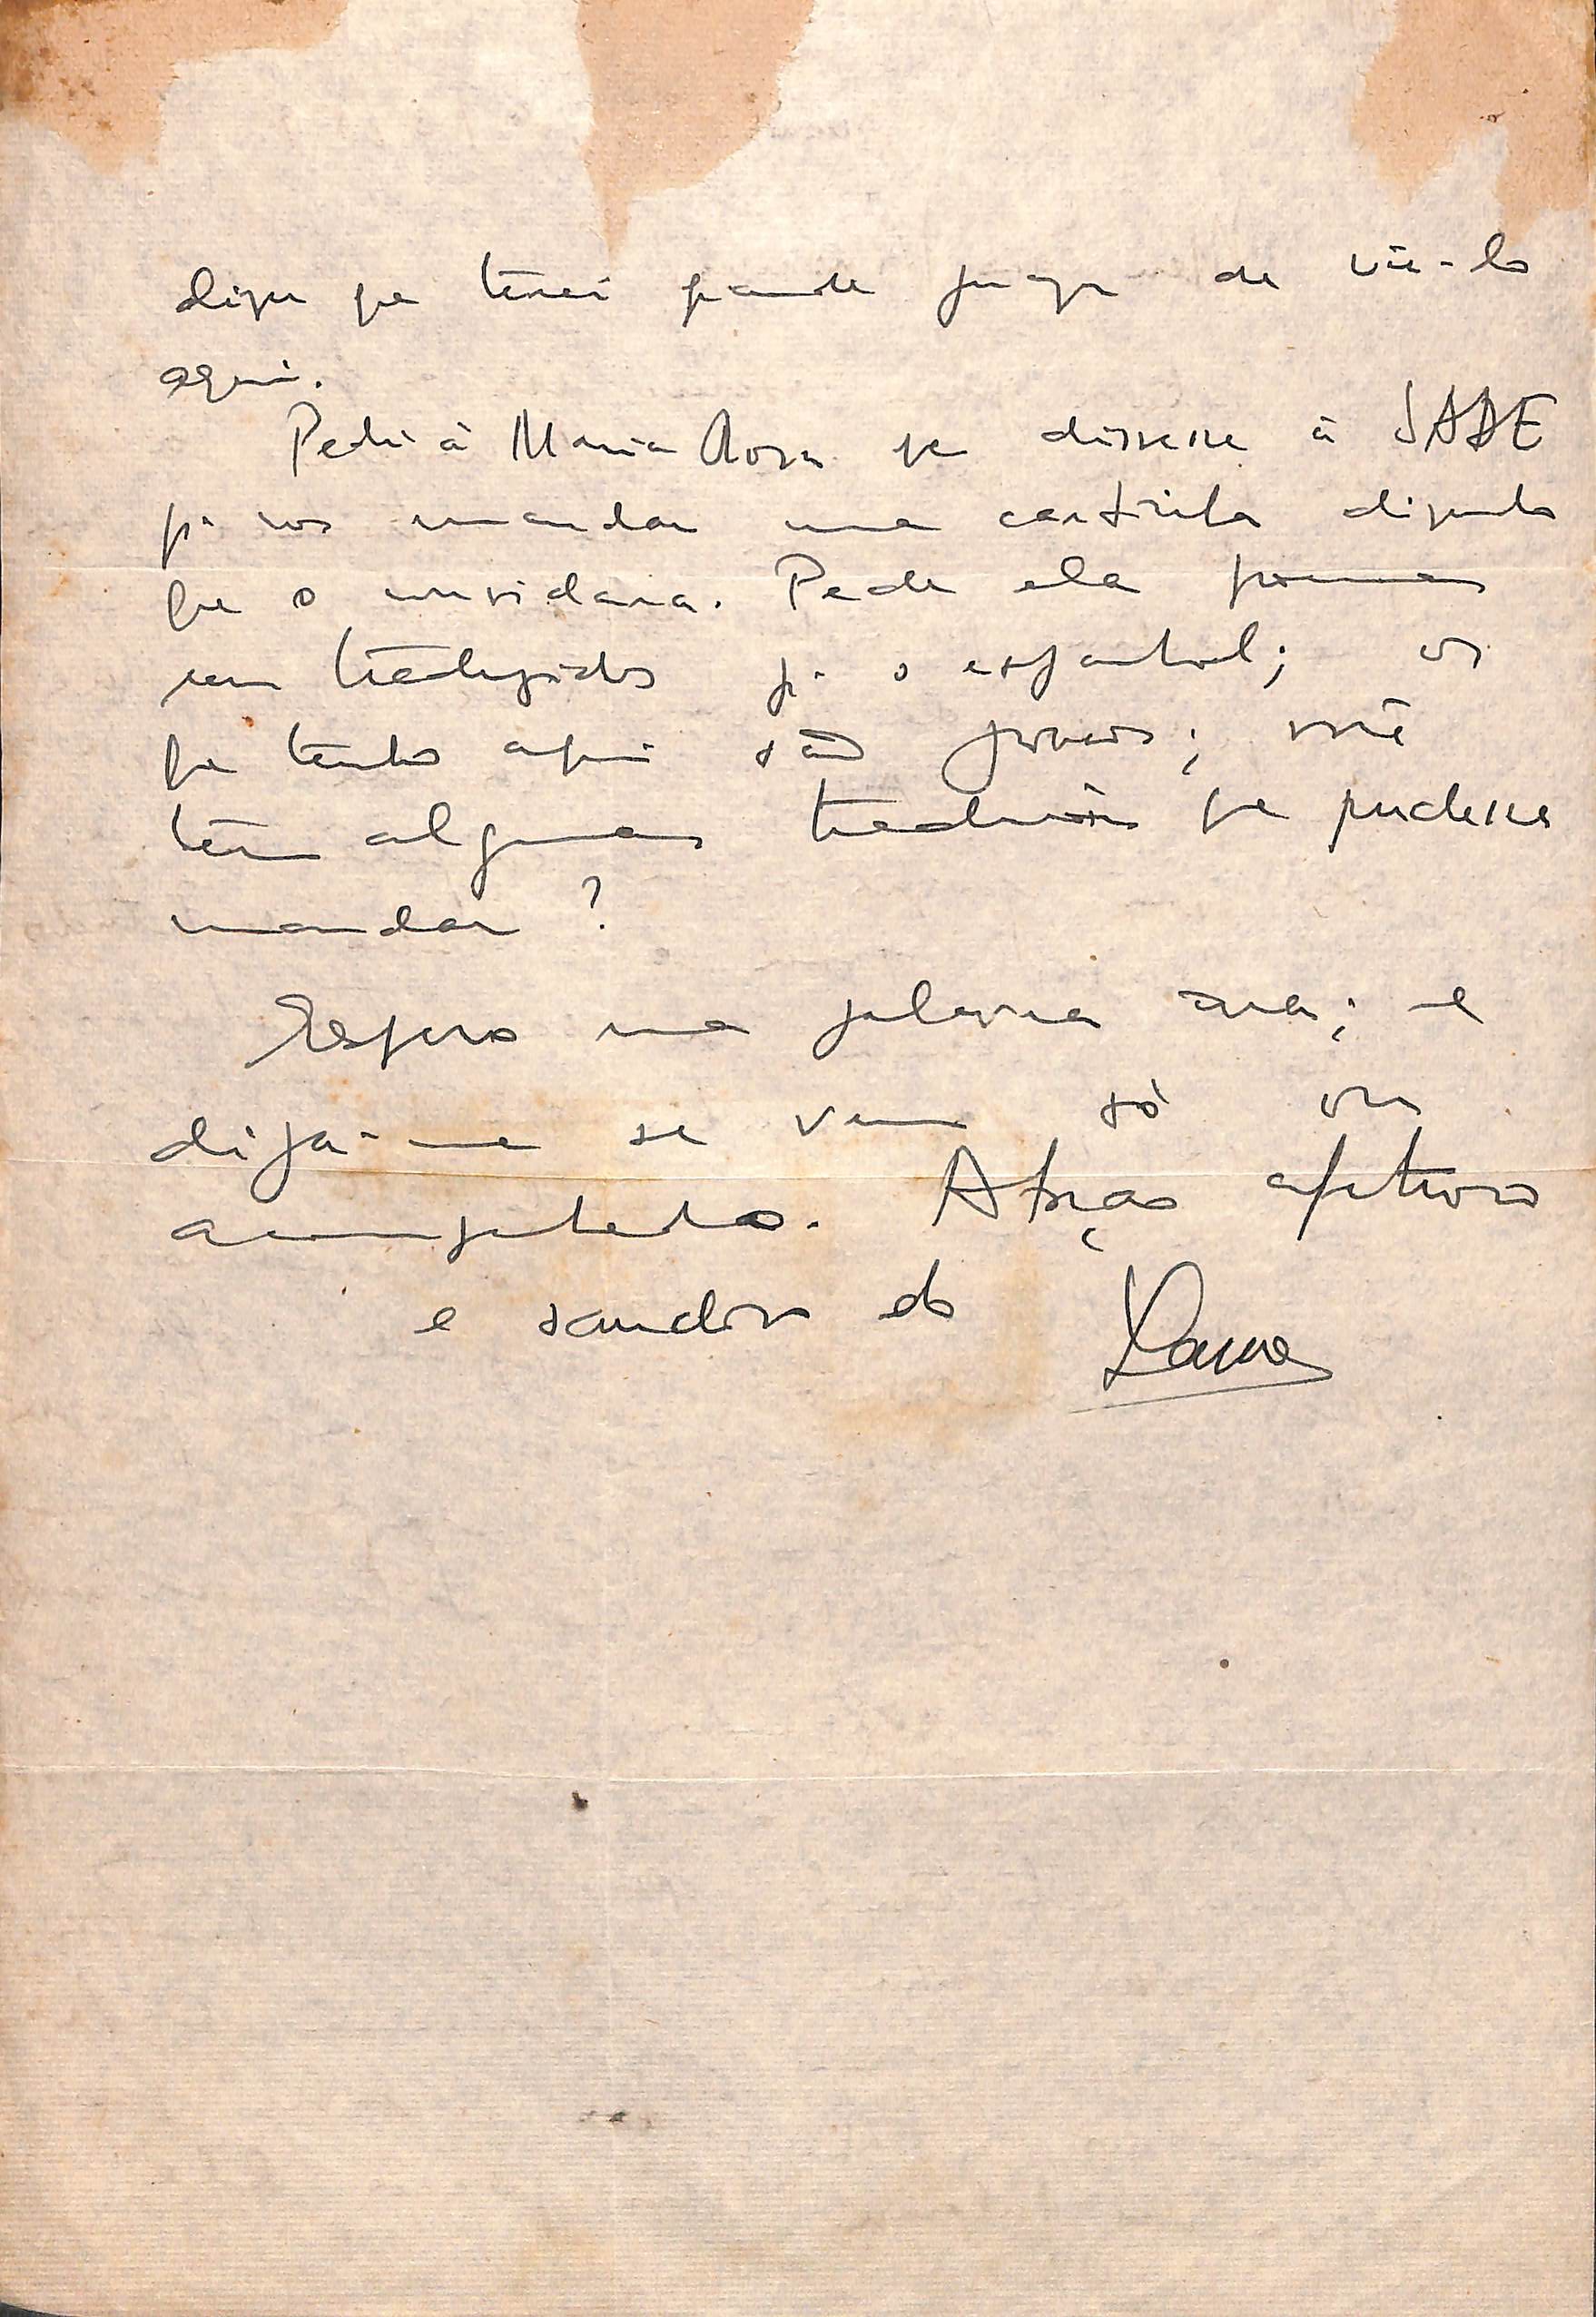 digo que terei grande prazer de vê-lo
aqui.
Pedi à Maria Rosa que dissesse à SADE
p. nos mandar uma cartinha dizendo
que o convidara. Pede ela poemas
seus traduzidos p. o espanhol; os
que tenho aqui são poucos; você
tem algumas traduções que pudesse
mandar?
Espero uma palavra sua; e
diga-me se vem só ou
acompanhado. Abraço afetuoso
e saudoso do